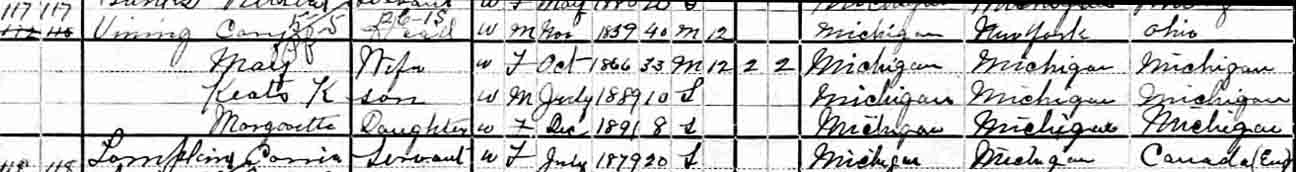 117 117 Servant W F May 1880 20 S Michigan Michigan
Vining 5/5 RC-15 Head W M Nov 1859 40 M 12 Michigan New York Ohio
Mary Wife W F Oct 1866 33 M 12 2 2 Michigan Michigan Michigan
Keats K son W M July 1889 10 S Michigan Michigan Michigan
Margarette Daughter W F Dec 1891 8 S Michigan Michigan Michigan
118 118 Lampkins Servant W F July 1879 20 S Michigan Michigan Canada (Eng)